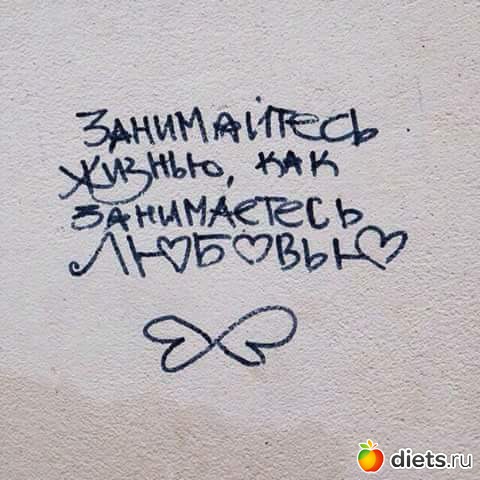 ЗАНИМАЙТЕСЬ
ЖИЗНЬЮ, КАК
ЗАНИМАЕТЕСЬ
ЛЮБОВЬЮ
diets.ru